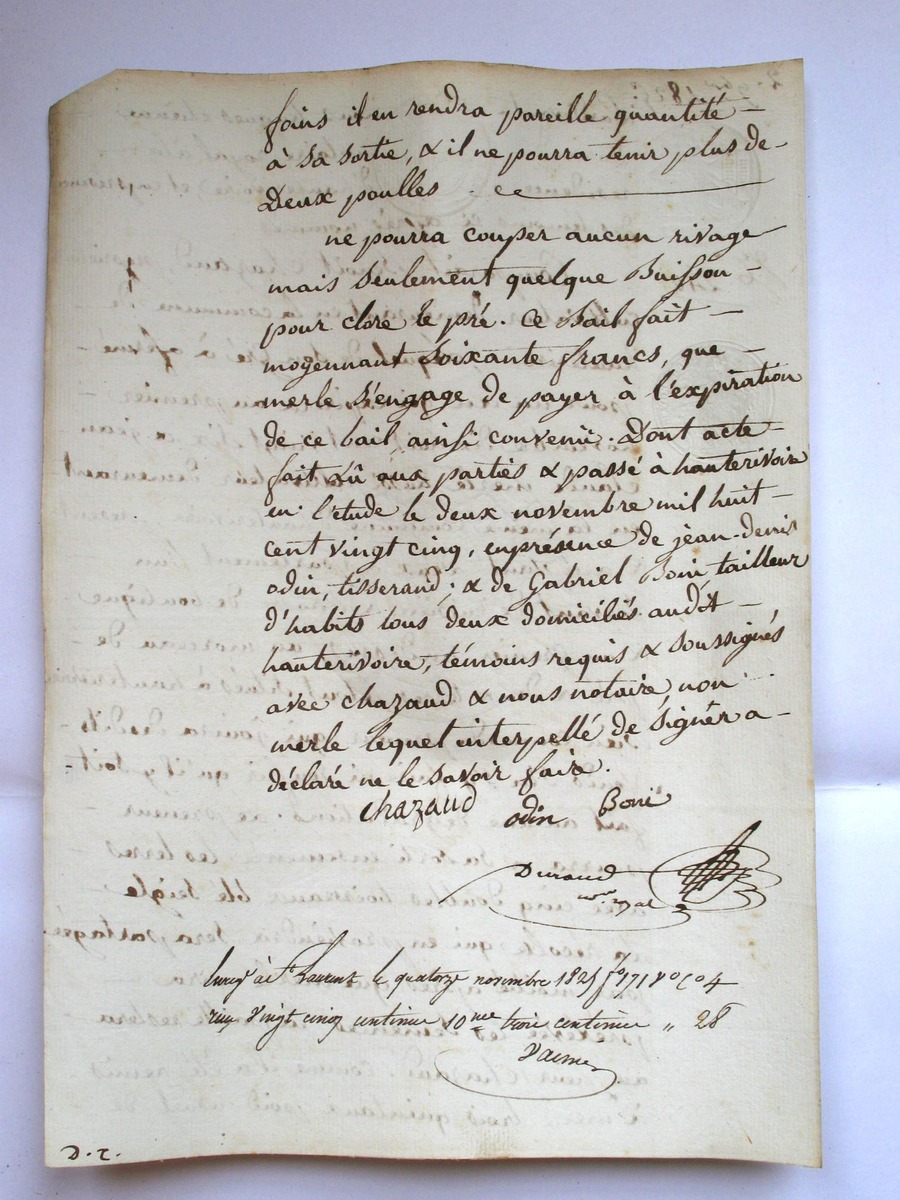 foins il en rendra pareille quantité -
à sa sortie, & il ne pourra tenir plus de -
Deux poulles
ne pourra couper aucun rivage
mais seulement quelque Buisson -
pour clore le pré. Ce Bail fait -
moyennant soixante francs, que -
merle s'engage de payer à l'expiration
de ce bail ainsi convenû. Dont acte -
fait Lû aux parties & passé à hauterivoire
en l'etude le deux novembre mil huit -
cent vingt cinq, en présence de jean-denis
odin, tisserand; & de Gabriel Boni tailleur
d'habits tous deux domiciliés audit -
hauterivoire, témoins requis & soussignés
avec chazaud & nous notaire, non
merle lequel interpellé de signer a -
déclaré ne le savoir faire.
Chazaud odin Boni
Durand
nre. royal
Enreg à St Laurent le quatorze novembre 1825 fo 171 Vo Co 4
reçu Vingt cinq centimes 10me trois centimes " 28
D.T.